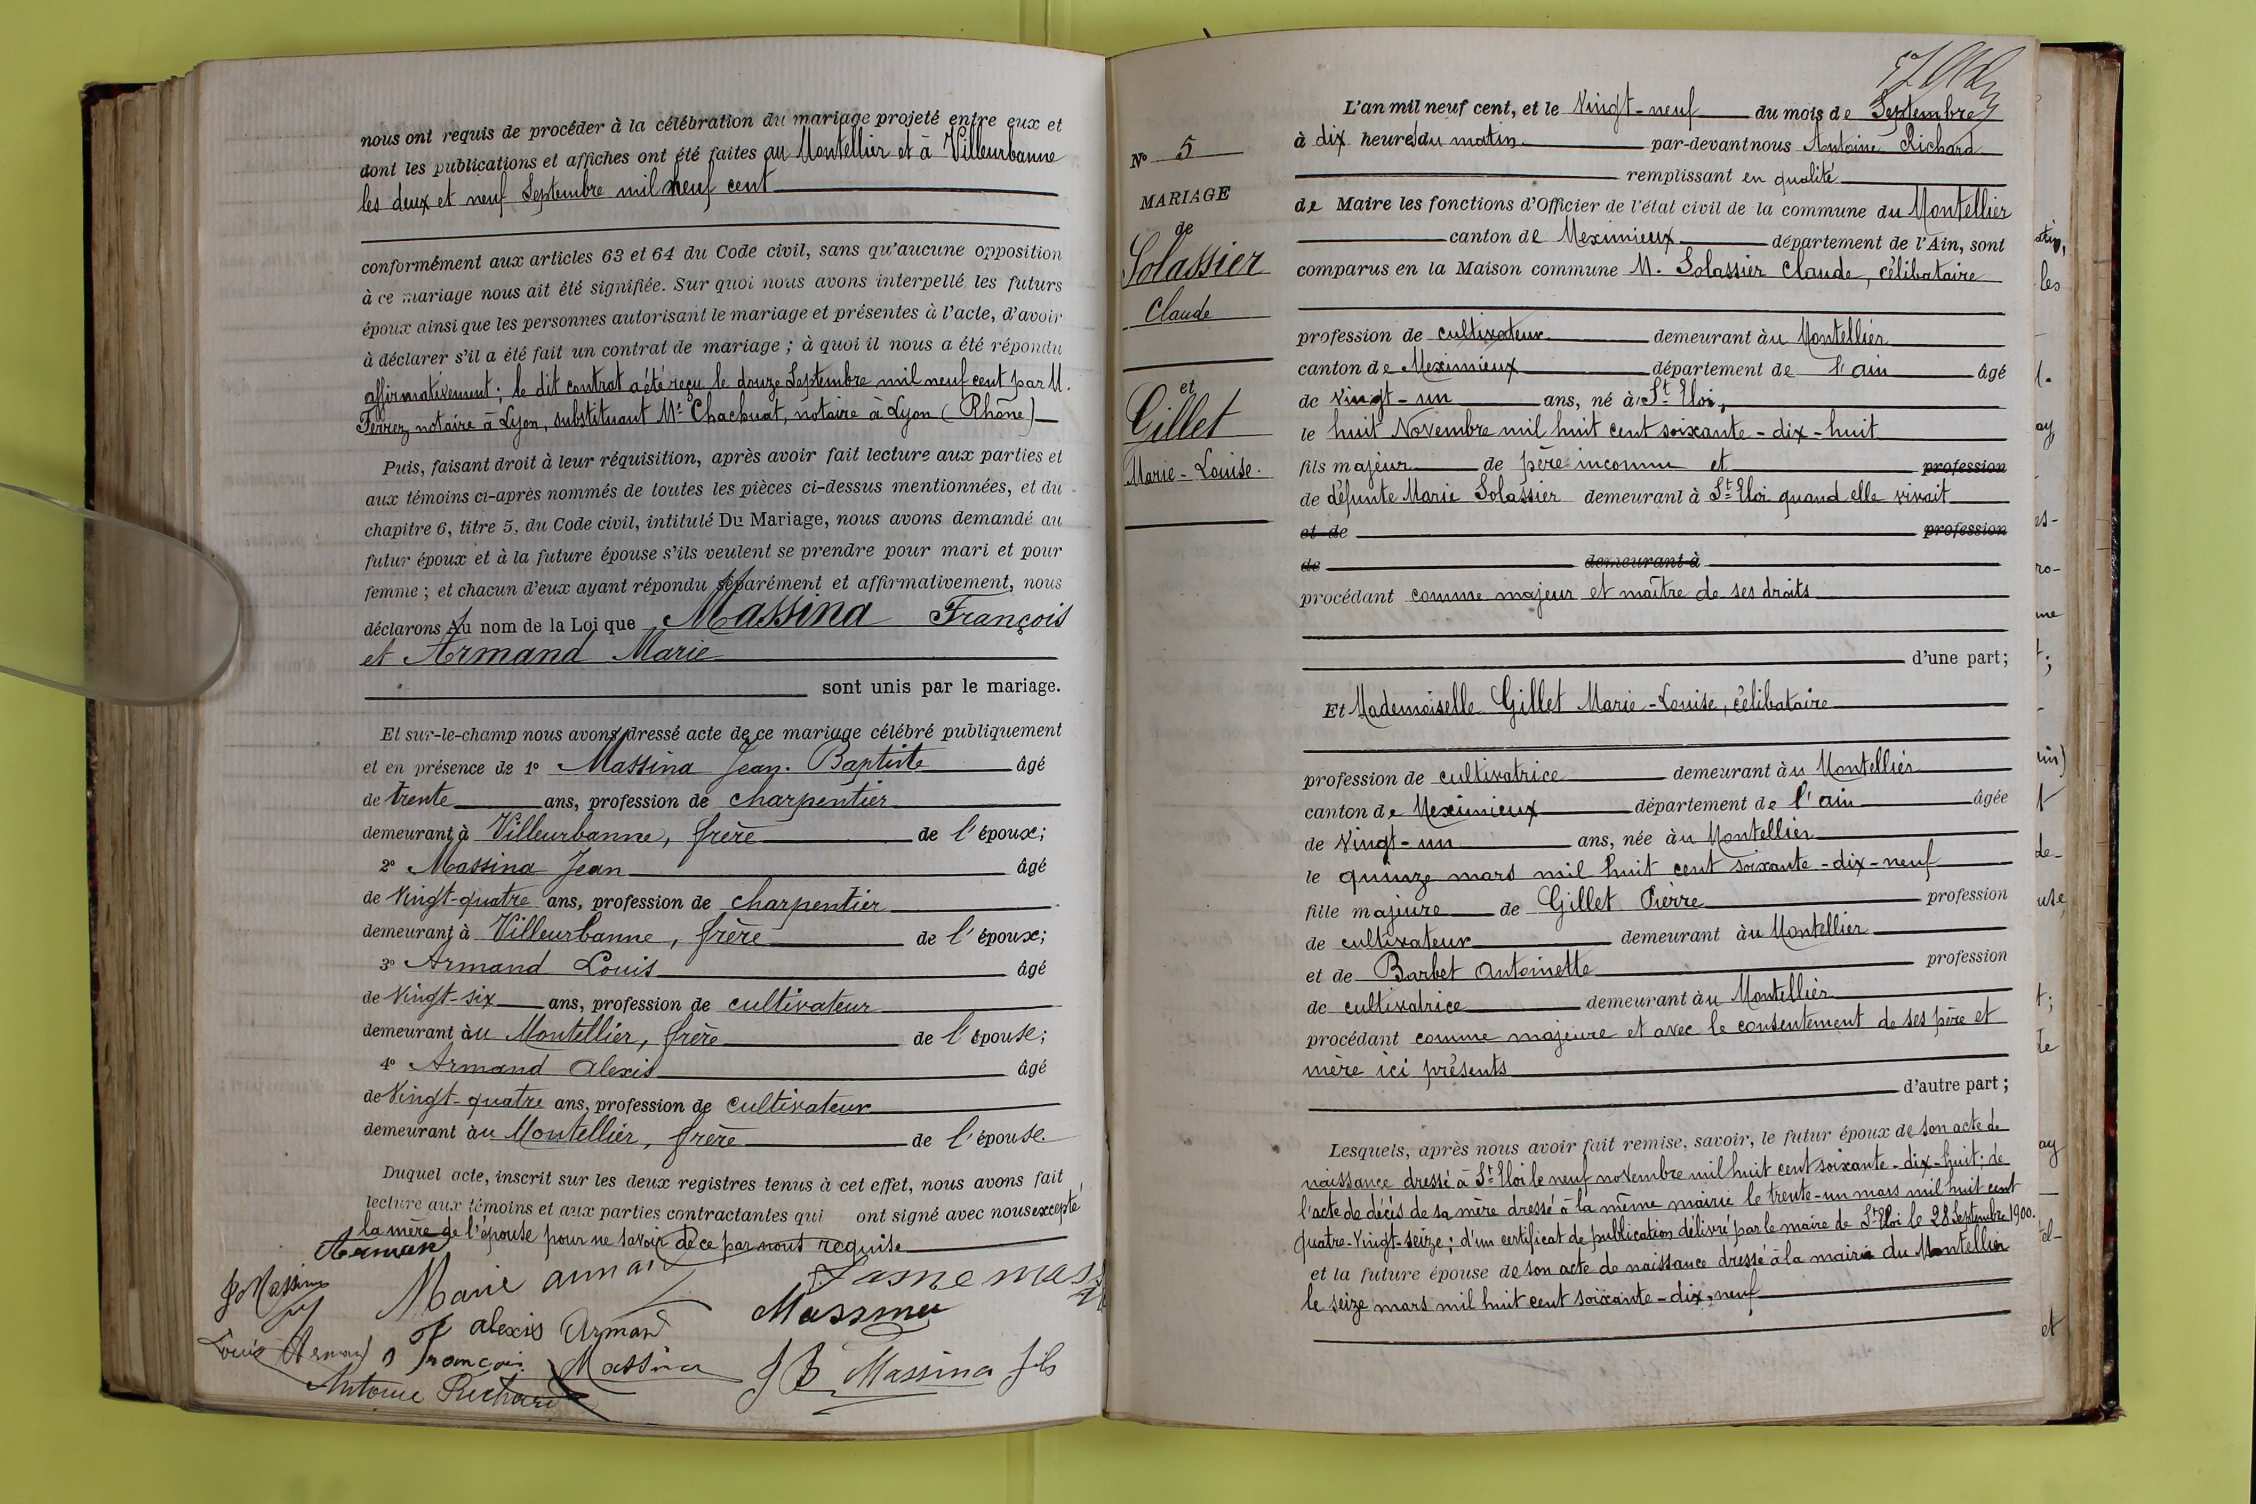 nous ont requis de procéder à la célébration du mariage projeté entre eux et
dont les publications et affiches ont été faites au Montellier et à Villeurbanne
les deux et neuf Septembre mil neuf cent
conformément aux articles 63 et 64 du Code civil, sans qu'aucune opposition
à ce mariage nous ait été signifiée. Sur quoi nous avons interpellé les futurs
époux ainsi que les personnes autorisant le mariage et présentes à l'acte, d'avoir
à déclarer s'il a été fait un contrat de mariage ; à quoi il nous a été répondu
affirmativement ; le dit contrat a été reçu le douze Septembre mil neuf cent par M.
Ferrez notaire à Lyon, substituant Me Chachuat, notaire à Lyon (Rhône)
Puis, faisant droit à leur réquisition, après avoir fait lecture aux parties et
aux témoins ci-après nommés de toutes les pièces ci-dessus mentionnées, et du
chapitre 6, titre 5, du Code civil, intitulé Du Mariage, nous avons demandé au
futur époux et à la future épouse s'ils veulent se prendre pour mari et pour
femme ; et chacun d'eux ayant répondu séparément et affirmativement, nous
déclarons au nom de la Loi que Massina François
et Armand Marie
sont unis par le mariage.
Et sur-le-champ nous avons dressé acte de ce mariage célébré publiquement
et en présence de 1° Massina Jean-Baptiste âgé
de trente ans, profession de charpentier
demeurant à Villeurbanne, frère de l'époux;
2° Massina Jean âgé
de Vingt-quatre ans, profession de charpentier
demeurant à Villeurbanne, frère de l'époux;
3° Armand Louis âgé
de Vingt-six ans, profession de cultivateur
demeurant au Montellier, frère de l'épouse;
4° Armand Alexis âgé
de Vingt-quatre ans, profession de cultivateur
demeurant au Montellier, frère de l'épouse.
Duquel acte, inscrit sur les deux registres tenus à cet effet, nous avons fait
lecture aux témoins et aux parties contractantes qui ont signé avec nous excepté
la mère de l'épouse pour ne savoir de ce par nous requise
Armand
J Massina
Marie Armand
Massina
Louis Armand
alexis Armand
François Massina
J B Massina fils
Antoine Richard
L'an mil neuf cent, et le Vingt-neuf du mois de Septembre
à dix heures du matin par-devant nous Antoine Richard
remplissant en qualité
de Maire les fonctions d'Officier de l'état civil de la commune du Montellier
canton de Meximieux département de l'Ain, sont
comparus en la Maison commune M. Solassier Claude, célibataire
N° 5
MARIAGE
de
Solassier
Claude
et
Gillet
Marie-Louise.
profession de cultivateur demeurant au Montellier
canton de Meximieux département de l'ain âgé
de Vingt-un ans, né à St Eloi,
le huit Novembre mil huit cent soixante-dix-huit
fils majeur de père inconnu et profession
de défunte Marie Solassier demeurant à St Eloi quand elle vivait
et de profession
de demeurant à
procédant comme majeur et maître de ses droits
d'une part;
Et Mademoiselle Gillet Marie-Louise, célibataire
profession de cultivatrice demeurant au Montellier
canton de Meximieux département de l'ain âgée
de Vingt-un ans, née au Montellier
le quinze mars mil huit cent soixante-dix-neuf
fille majeure de Gillet Pierre profession
de cultivateur demeurant au Montellier
et de Barbet Antoinette profession
de cultivatrice demeurant au Montellier
procédant comme majeure et avec le consentement de ses père et
mère ici présents
d'autre part ;
Lesquels, après nous avoir fait remise, savoir, le futur époux de son acte de
naissance dressé à St Eloi le neuf novembre mil huit cent soixante-dix-huit; de
l'acte de décès de sa mère dressé à la même mairie le trente-un mars mil huit cent
quatre-Vingt-seize ; d'un certificat de publication délivré par le maire de St Eloi le 28 Septembre 1900.
et la future épouse de son acte de naissance dressé à la mairie du Montellier
le seize mars mil huit cent soixante-dix-neuf